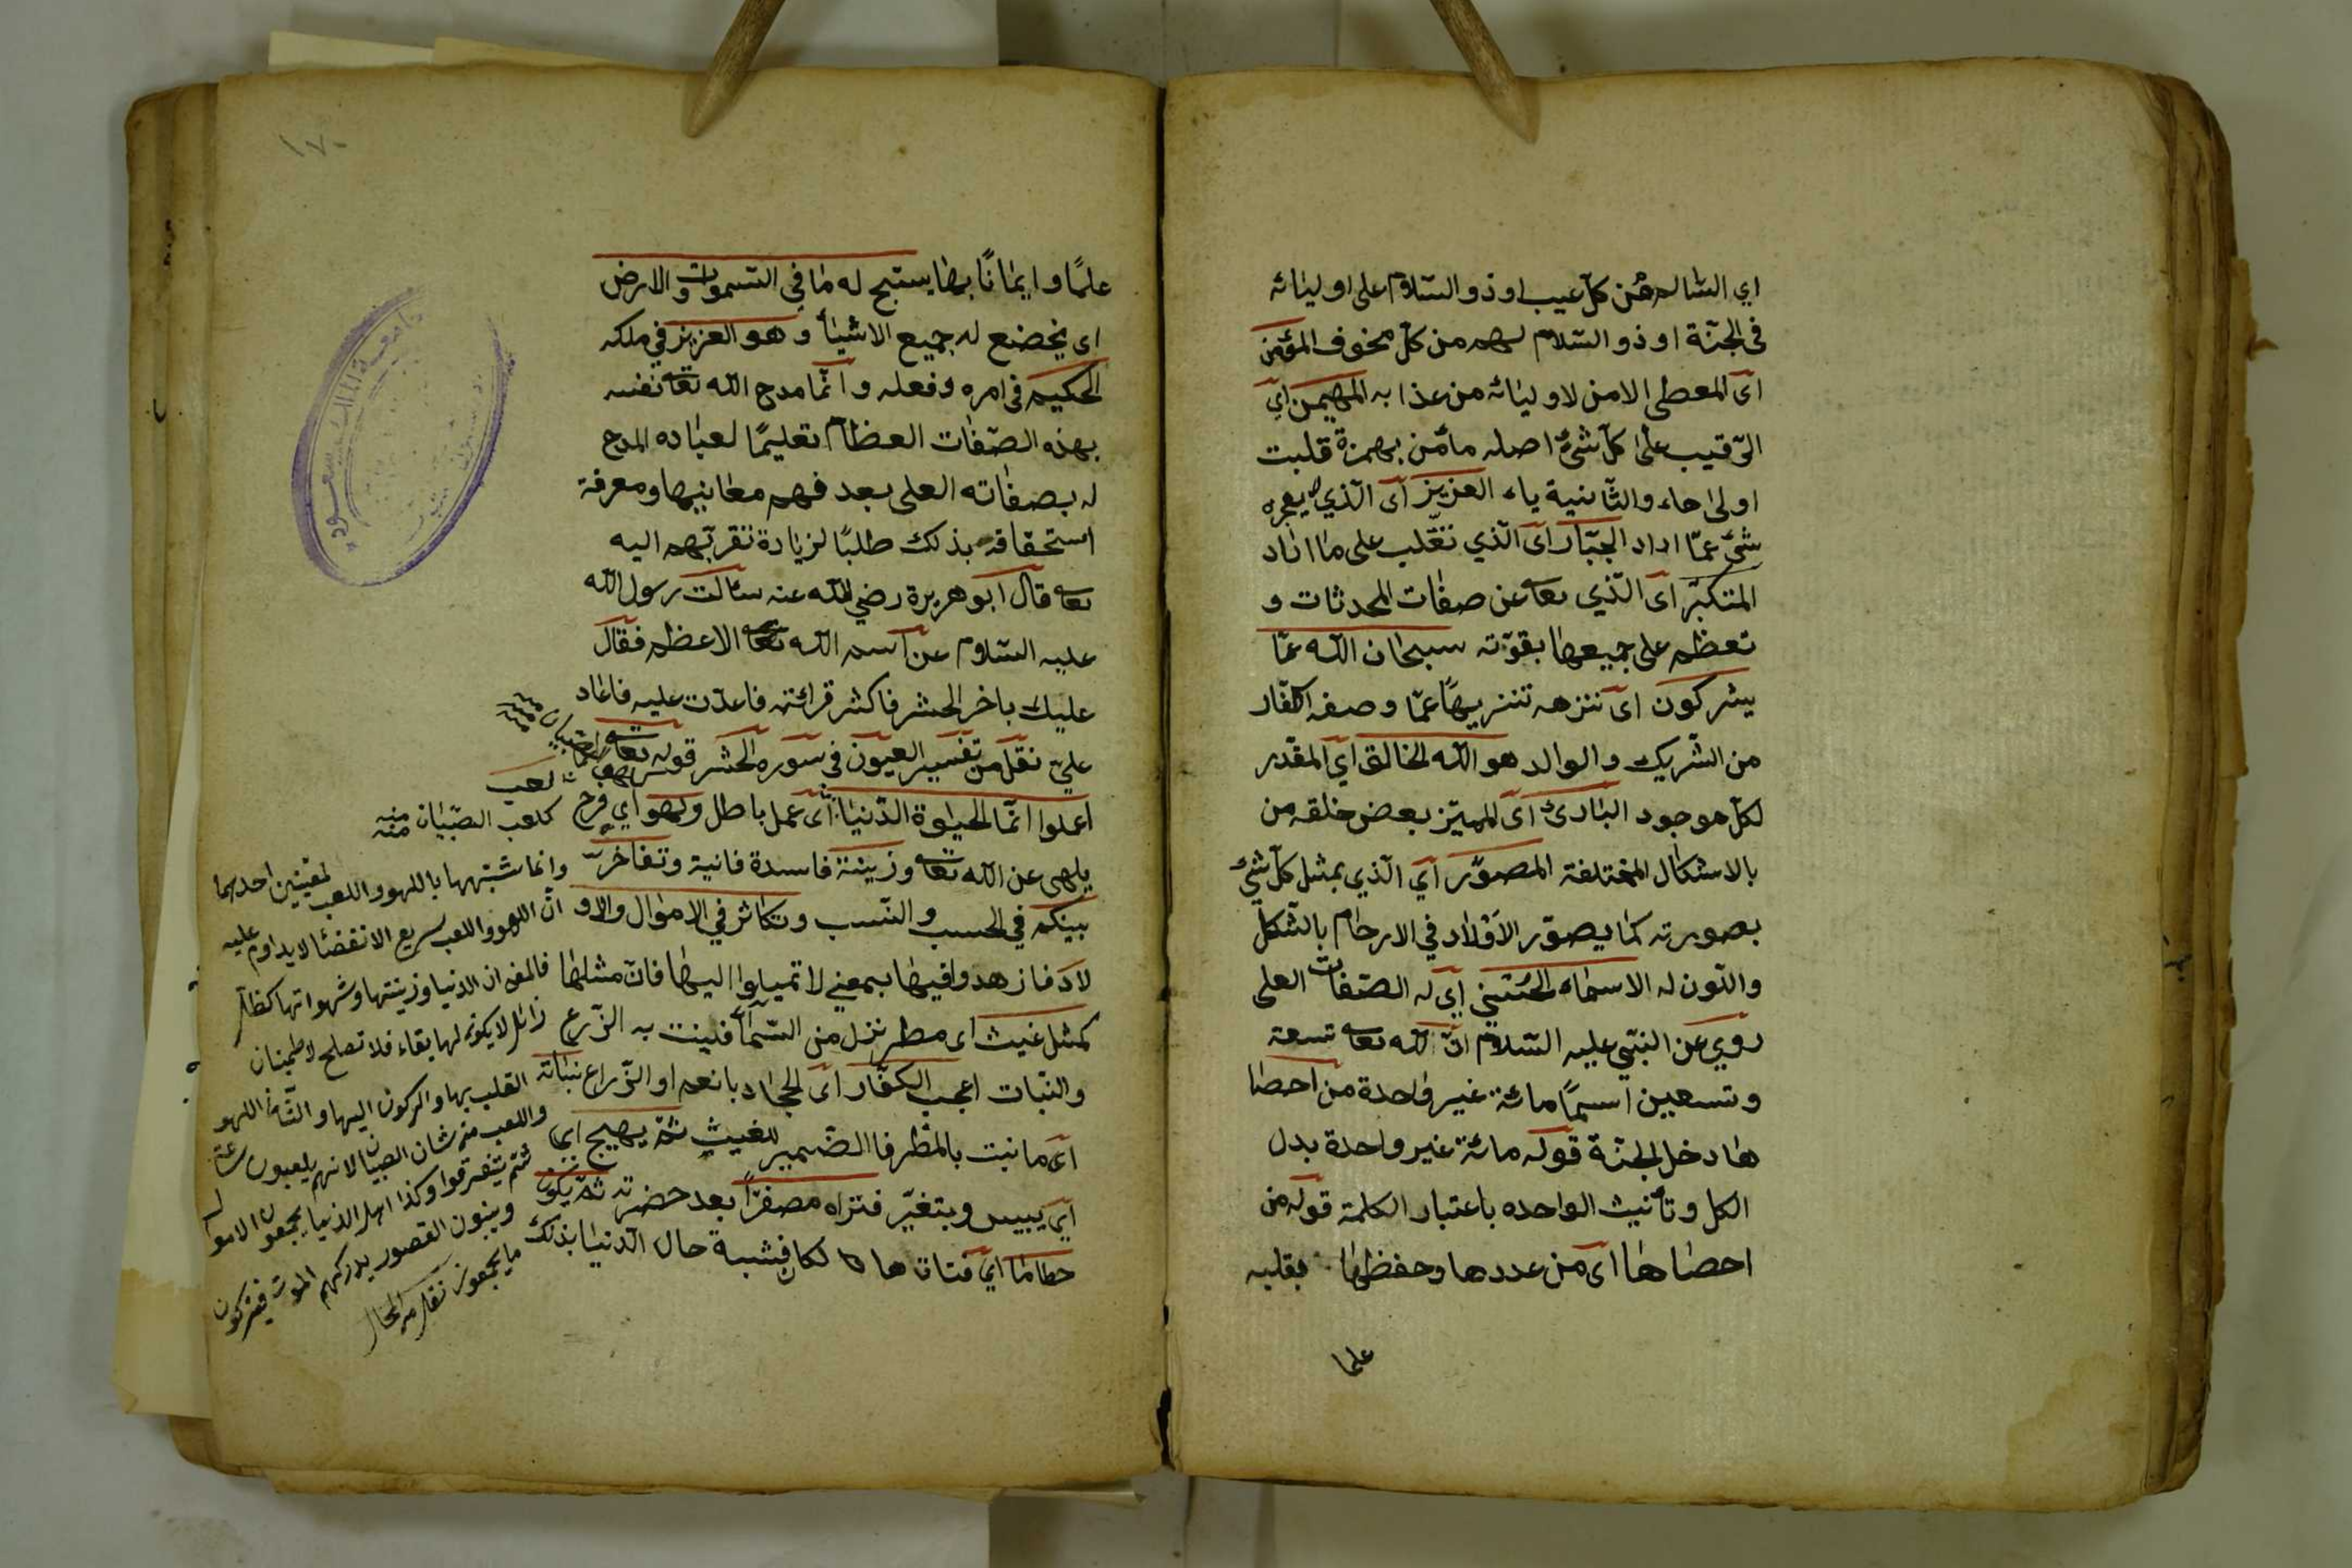 اي السّالم من كلّ عيب او ذو السّلام على اوليائه
فى الجنّة او ذو السّلام لهم من كلّ مخوف المؤمن
اى المعطى الامن لاوليائه من عذابه المهيمن اي
الرّقيب على كلّ شئ اصله مأمن بهمزة قلبت
اولى هاء والثّانية ياء العزيز اى الّذي لا يعجزه
شئ عمّا اراد الجبّار اى الّذي تغّلب على ما اراد
المتكبّر اى الّذي تعا عن صفات المحدثات و
تعظم على جميعها بقوّته سبحان الله عمّا
يشركون اى ننزهه تنزيهًا عمّا وصفه الكفّار
من الشّريك والوالد هو الله الخالق اي المقدر
لكلّ موجود البارئ اى المميّز بعض خلقه من
بالاشكال المختلفة المصوّر اي الّذي يمثل كلّ شئ
بصورته كما يصوّر الاولاد في الارحام بالشكل
واللّون له الاسماء الحسنى اي له الصّفات العلى
روي عن النبّي عليه السّلام انّ لله تعا تسعة
وتسعين اسمًا مائة غير واحدة من احصا
ها دخل الجنّة قوله مائة غير واحدة بدل
الكل وتأنيث الواحده باعتبار الكلمة قوله من
احصاها اى من عددها وحفظها بقلبه
علما
١٧٠
علمًا وايمانًا بها يسبّح له ما في السّموات والارض
اى يخضع له جميع الاشياء وهو العزيز في ملكه
الحكيم فى امره وفعله وانّما مدح الله تعا نفسه
بهذه الصّفات العظام تعليمًا لعباده المدح
له بصفاته العلى بعد فهم معانيها ومعرفة
استحقاقه بذلك طلبًا لزيادة تقرّبهم اليه
تعا قال ابو هريرة رضي الله عنه سئالت رسول الله
عليه السّلام عن اسم الله تعا الاعظم فقال
عليك باخر الحشر فاكثر قرائته فاعدت عليه فاعاد
عليّ نقل من تفسير العيون فى سورة الحشر قوله تعا
اعملوا انّما الحيوة الدّنيا اى عمل باطل ولهو اي فرح
يلهى عن الله تعا وزينة فاسدة فانية وتفاخر
بينكم في الحسب والنّسب وتكاثر في الاموال والاو
لاد فازهدوا فيها بمعني لا تميلوا اليها فانّ مثلها
كمثل غيث اى مطر نزل من السّمآء فنبت به الزّرع
والنّبات اعجب الكفّار اى الجحاد بانعم او الزّراع نباته
اى ما نبت بالمطر فاالضّمير للغيث ثمّ يهيج
اي ييبس ويتغيّر فتراه مصفرّا بعد خضرته ثمّ يكون
حطاما اي فتاتا فشبه حال الدّنيا بذلك
لعب
كلعب الصّبيان منه
وانما شبّهها باللهو واللعب لمعنيين احدهما
انّ اللهو واللعب سريع الانقضاء لا يداوم عليه
فالمعنى ان الدنيا وزينتها وشهواتها كظلّ
زائل لا يكون لها بقاء فلا تصلح لاطمينان
القلب بها والركون اليها والثّانى اللهو
واللعب من شان الصبيان لانهم يلعبون ساعة
ثمّ يتفرقوا وكذا اهل الدنيا يجمعون الاموال
ويبنون القصور يدركهم الموت فيتركون
ما يجمعون
جامعة الملك سعود